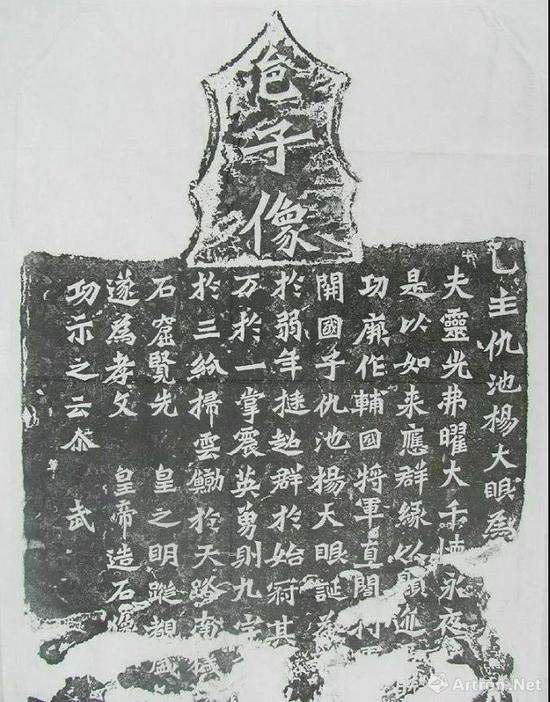 邑子像
邑主仇池楊大眼為
夫靈光弗曜大千懷永夜
是以如來應群緣以顯迹
功厥作輔國將軍直閤將
開國子仇池楊大眼誕承
於弱年挺超群於始冠其
万於一掌震英勇則九宇
於三紛掃雲鯨於天路南穢
石窟覽先 皇之明蹤覩盛
遂為孝文 皇帝造石像
功示之云尒 武
Artron.Net